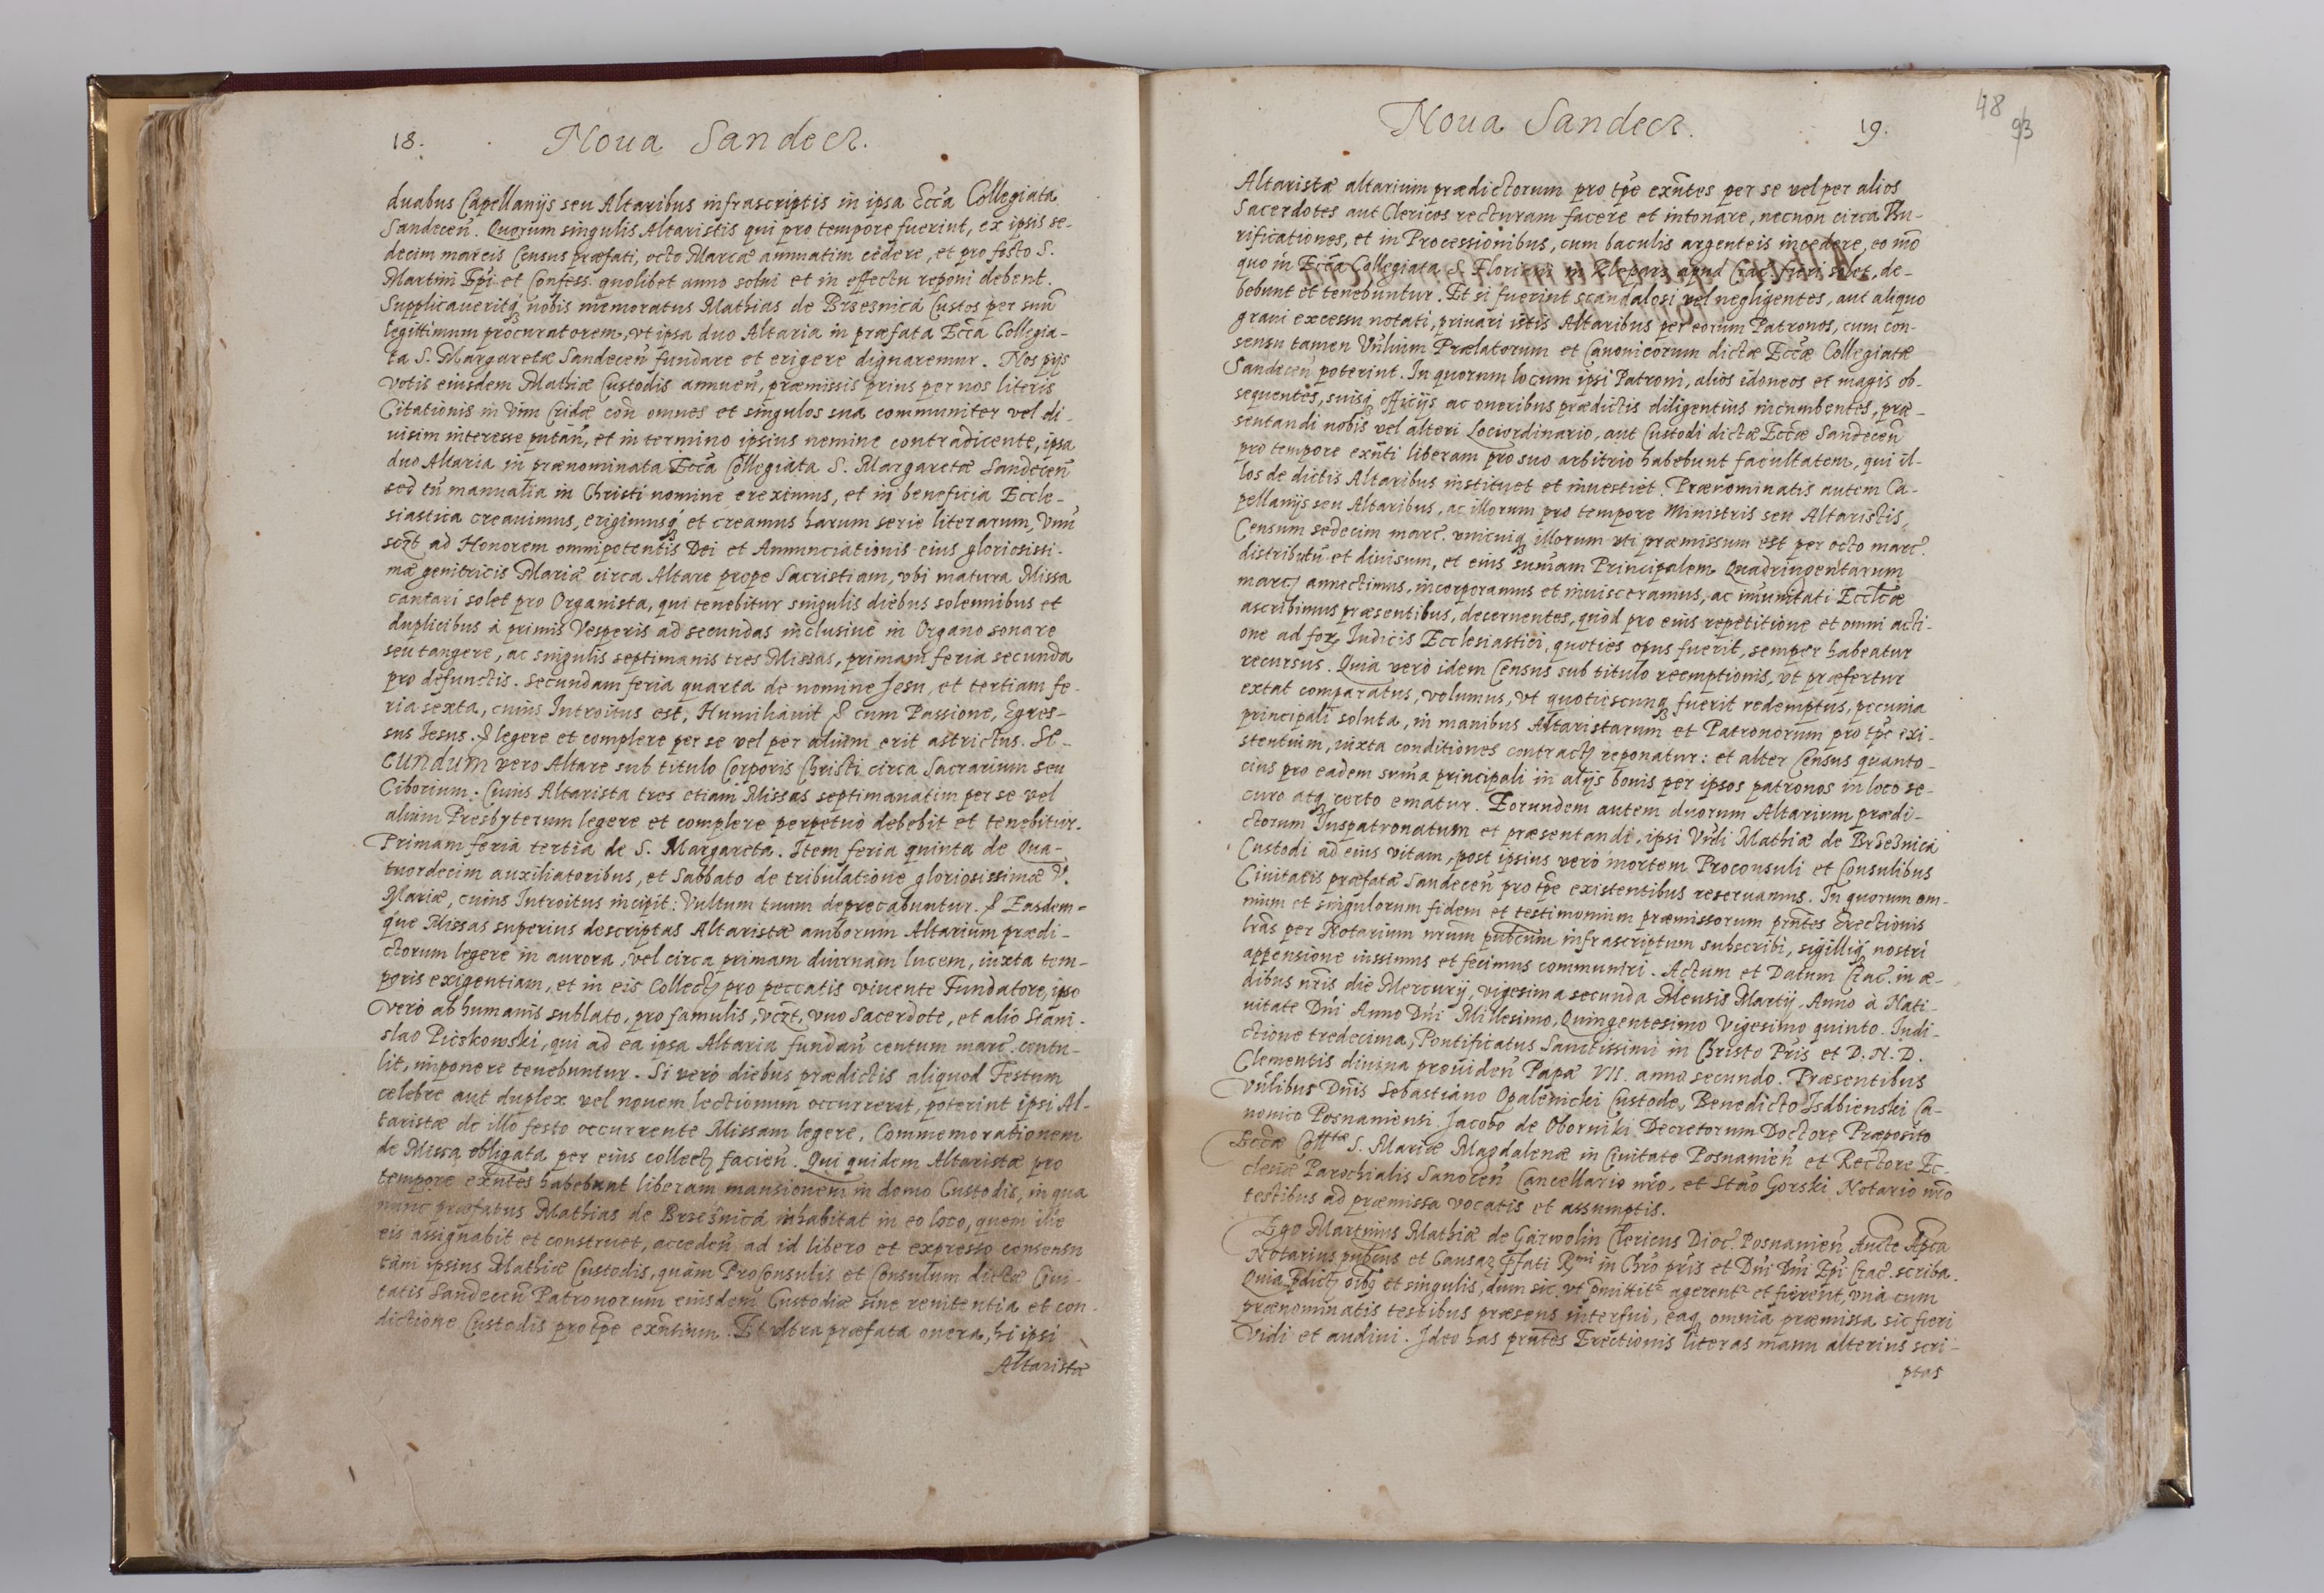 18. Noua Sandecz.
duabus Capellanijs seu Altaribus infrascriptis in ipsa Eccã Collegiata
Sandeceñ. Quorum singulis Altaristis qui pro tempore fuerint, ex ipsis se-
decim marcis Census præfati, octo Marcæ annuatim cedere, et pro festo S.
Martini Epĩ et Confess. quolibet anno solui et in effectu reponi debent.
Supplicaueritq́ꝫ nobis memoratus Mathias de Brzeznica Custos per suũ
legittimum procuratorem, vt ipsa duo Altaria in præfata Eccã Collegia-
ta S. Margaretæ Sandeceñ fundare et erigere dignaremur. Nos pijs
votis eiusdem Mathiæ Custodis annueñ, præmissis prius per nos literis
Citationis in vim Cridæ coñ omnes et singulos sua communiter vel di-
uisim interesse putañ, et in termino ipsius nemine contradicente, ipsa
duo Altaria in prænominata Eccã Collegiata S. Margaretæ Sandeceñ
sed tñ manualia in Christi nomine ereximus, et in beneficia Eccle-
siastica creauimus, erigimusq́ꝫ et creamus harum serie literarum, Vnũ
sczt ad Honorem omnipotentis Dei et Annunciationis eius gloriosissi-
mæ genitricis Mariæ circa Altare prope Sacristiam, vbi matura Missa
cantari solet pro Organista, qui tenebitur singulis diebus solennibus et
duplicibus à primis Vesperis ad secundas inclusiuè in Organo sonare
seu tangere, ac singulis septimanis tres Missas, primam feria secunda
pro defunctis. secundam feria quarta de nomine Jesu, et tertiam fe-
ria sexta, cuius Introitus est, Humiliauit & cum Passione, Egres-
sus Iesus. & legere et complere per se vel per alium erit astrictus. SE-
CUNDUM vero Altare sub titulo Corporis Christi circa Sacrarium seu
Ciborium. Cuius Altarista tres etiam Missas septimanatim per se vel
alium Presbyterum legere et complere perpetuò debebit et tenebitur.
Primam feria tertia de S. Margareta. Item feria quinta de Qua-
tuordecim auxiliatoribus, et Sabbato de tribulatione gloriosissimæ V.
Mariæ, cuius Introitus incipit: Vultum tuum deprecabuntur. & Easdem-
que Missas superius descriptas Altaristæ amborum Altarium prædi-
ctorum legere in aurora, vel circa primam diurnam lucem, iuxta tem-
poris exigentiam, et in eis Collectꝭ pro peccatis viuente Fundatore, ipso
verò ab humanis sublato, pro famulis, vczt, vno Sacerdote, et alio Stani-
slao Piczkowski, qui ad ea ipsa Altaria fundañ centum marc. contu-
lit, imponere tenebuntur. Si verò diebus prædictis aliquod Festum
celebre aut duplex vel nouem lectionum occurrerit, poterint ipsi Al-
taristæ de illo festo occurrente Missam legere, Commemorationem
de Missa obligata per eius collectꝭ facieñ. Qui quidem Altaristæ pro
tempore exñtes habebunt liberam mansionem in domo Custodis, in qua
nunc præfatus Mathias de Brzeznica inhabitat in eo loco, quem ille
eis assignabit et construet, accedeñ ad id libero et expresso consensu
tam ipsius Mathiæ Custodis, quàm ProConsulis et Consulum dictæ Ciui-
tatis Sandeceñ Patronorum eiusdem Custodiæ sine renitentia et con-
dictione Custodis pro tp̃e exñtium. Et vltra præfata onera, hi ipsi
Altaristæ
Noua Sandecz. 19.
48
93
Altaristæ altarium prædictorum pro tp̃e exñtes per se vel per alios
Sacerdotes aut Clericos recturam facere et intonare, necnon circa Tu-
rificationes, et in Processionibus, cum baculis argenteis incedere, eo mõ
quo in Eccã Collegiata S. Floriani in Kleparz apud Crac. fieri solet, de-
bebunt et tenebuntur. Et si fuerint scandalosi vel negligentes, aut aliquo
graui excessu notati, priuari istis Altaribus per eorum Patronos, cum con-
sensu tamen Vñlium Prælatorum et Canonicorum dictæ Eccæ Collegiatæ
Sandeceñ poterint. In quorum locum ipsi Patroni, alios idoneos et magis ob-
sequentes, suisq́ꝫ officijs ac oneribus prædictis diligentius incumbentes, præ-
sentandi nobis vel alteri Lociordinario, aut Custodi dictæ Eccæ Sandeceñ
pro tempore exñti liberam pro suo arbitrio habebunt facultatem, qui il-
los de dictis Altaribus instituet et inuestiet. Prænominatis autem Ca-
pellanijs seu Altaribus, ac illorum pro tempore Ministris seu Altaristis,
Censum sedecim marc. vnicuiqꝫ illorum vti præmissum est per octo marc.
distributũ et diuisum, et eius sum̃am Principalem Quadringentarum
marcꝭ annectimus, incorporamus et inuisceramus, ac im̃unitati Eccl̃cæ
ascribimus præsentibus, decernentes, quòd pro eius repetitione et omni acti-
one ad forꝝ Iudicis Ecclesiastici, quoties opus fuerit, semper habeatur
recursus. Quia verò idem Census sub titulo reemptionis, vt præfertur
extat comparatus, volumus, vt quotiescunqꝫ fuerit redemptus, pecunia
principali soluta, in manibus Altaristarum et Patronorum pro tp̃e exi-
stentium, iuxta conditiones contractꝭ reponatur: et alter Census quanto-
cius pro eadem sum̃a principali in alijs bonis per ipsos patronos in loco se-
curo atqꝫ certo ematur. Eorundem autem duorum Altarium prædi-
ctorum Iuspatronatum et præsentandi, ipsi Vñli Mathiæ de Brzeznica
Custodi ad eius vitam, post ipsius verò mortem Proconsuli et Consulibus
Ciuitatis præfatæ Sandeceñ pro tp̃e existentibus reseruamus. In quorum om-
nium et singulorum fidem et testimonium præmissorum pñtes Erectionis
lr̃as per Notarium nr̃um pubcum infrascriptum subscribi, sigilliqꝫ nostri
appensione iussimus et fecimus communiri. Actum et Datum Crac. in æ-
dibus nr̃is die Mercurij, vigesima secunda Mensis Martij. Anno à Nati-
uitate Dñi Anno Dñi Millesimo, Quingentesimo Vigesimo quinto. Indi-
ctione tredecima, Pontificatus Sanctissimi in Christo Pr̃is et D. N. D.
Clementis diuina prouideñ Papæ VII. anno secundo. Præsentibus
Vñlibus Dñis Sebastiano Opalenicki Custode, Benedicto Isdbienski Ca-
nonico Posnaniensi. Jacobo de Oborniki Decretorum Doctore Præposito
Eccæ Colltæ S. Mariæ Magdalenæ in Ciuitate Posnanieñ et Rectore Ec-
clesiæ Parochialis Sanoceñ Cancellario nr̃o, et Stão Gorski Notario nr̃o
testibus ad præmissa vocatis et assumptis.
Ego Martinus Mathiæ de Garwolin Clericus Dioc. Posnanieñ Aucte Aplca
Notarius pubcus et Causaꝝ p̃fati Rmi in Chr̃o pr̃is et Dñi Dñi Epĩ Crac. scriba.
Quia p̃dictꝭ oĩbꝫ et singulis, dum sic, vt p̃mittitr agerentr et fierent, vnà cum
prænominatis testibus præsens interfui, eaqꝫ omnia præmissa sic fieri
vidi et audiui. Ideo has pñtes Erectionis literas manu alterius scri-
ptas